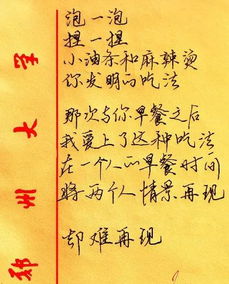 泡一泡
捏一捏
小油条和麻辣烫
你发明的吃法
那次与你早餐之后
我爱上了这种吃法
在一个人的早餐时间
将两个人情景再现
却难再现
郑州大学